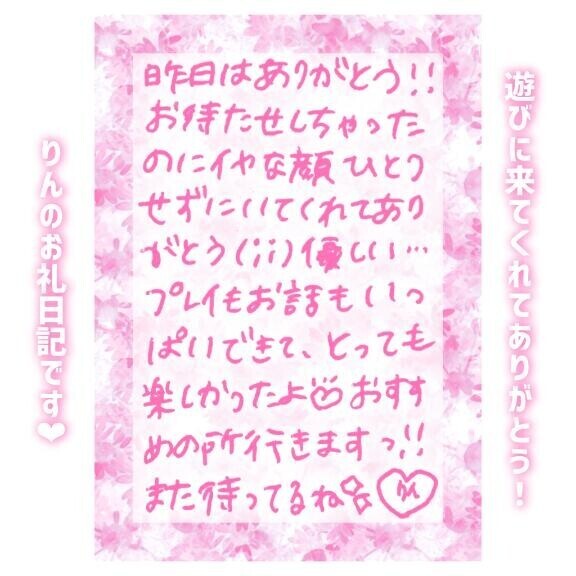 遊びに来てくれてありがとう！
昨日はありがとう!!
お待たせしちゃった
のにイヤな顔ひとつ
せずにいてくれてあり
がとう(;;)優しい…
プレイもお話もいっ
ぱいできて、とっても
楽しかったよ♡おすす
めの所行きますっ!!
また待ってるね☆りん
りんのお礼日記です❤